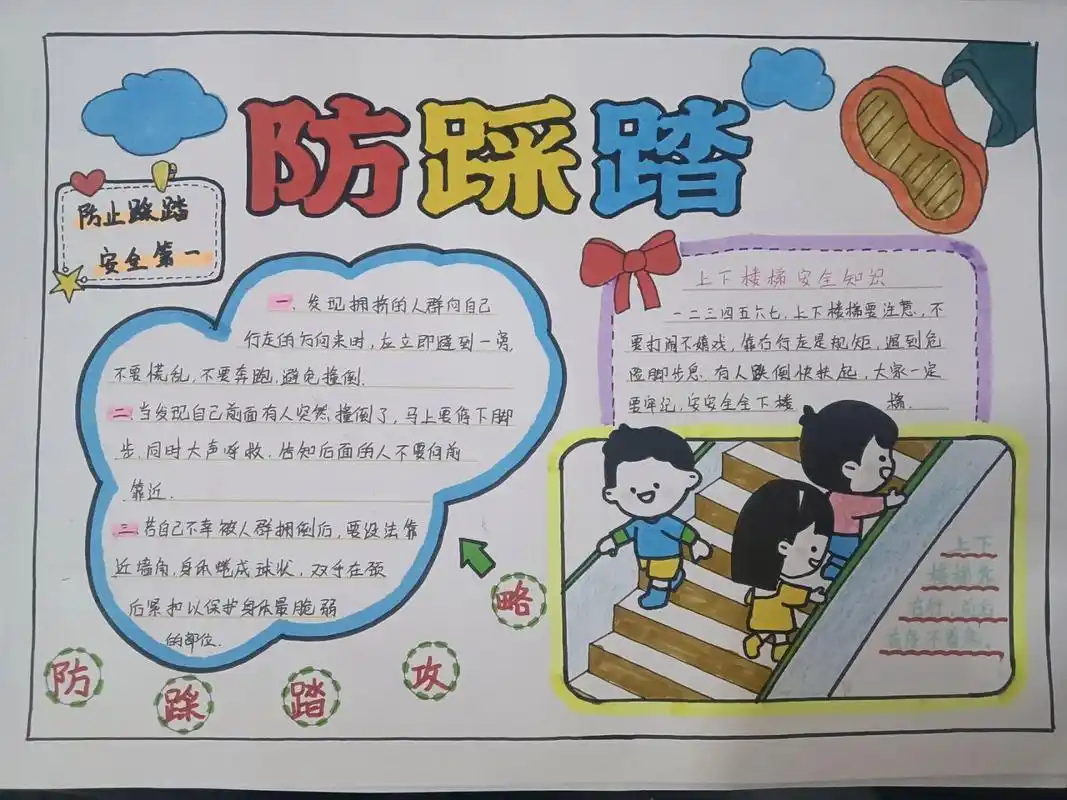 防踩踏
防止踩踏
安全第一
一. 发现拥挤的人群向自己
行走的方向来时, 应立即避到一旁,
不要慌乱, 不要奔跑, 避免撞倒.
二. 当发现自己前面有人突然撞倒了, 马上要停下脚
步. 同时大声呼救. 告知后面的人不要向前
靠近.
三. 若自己不幸被人群拥倒后, 要设法靠
近墙角, 身体蜷成球状, 双手在颈
后紧扣以保护身体最脆弱
的部位.
防踩踏攻略
上下楼梯安全知识
一二三四五六七, 上下楼梯要注意, 不
要打闹不嬉戏, 靠右行走是规矩, 遇到危
险脚步急. 有人跌倒快扶起, 大家一定
要牢记, 安安全全下楼梯.
上下
右行,